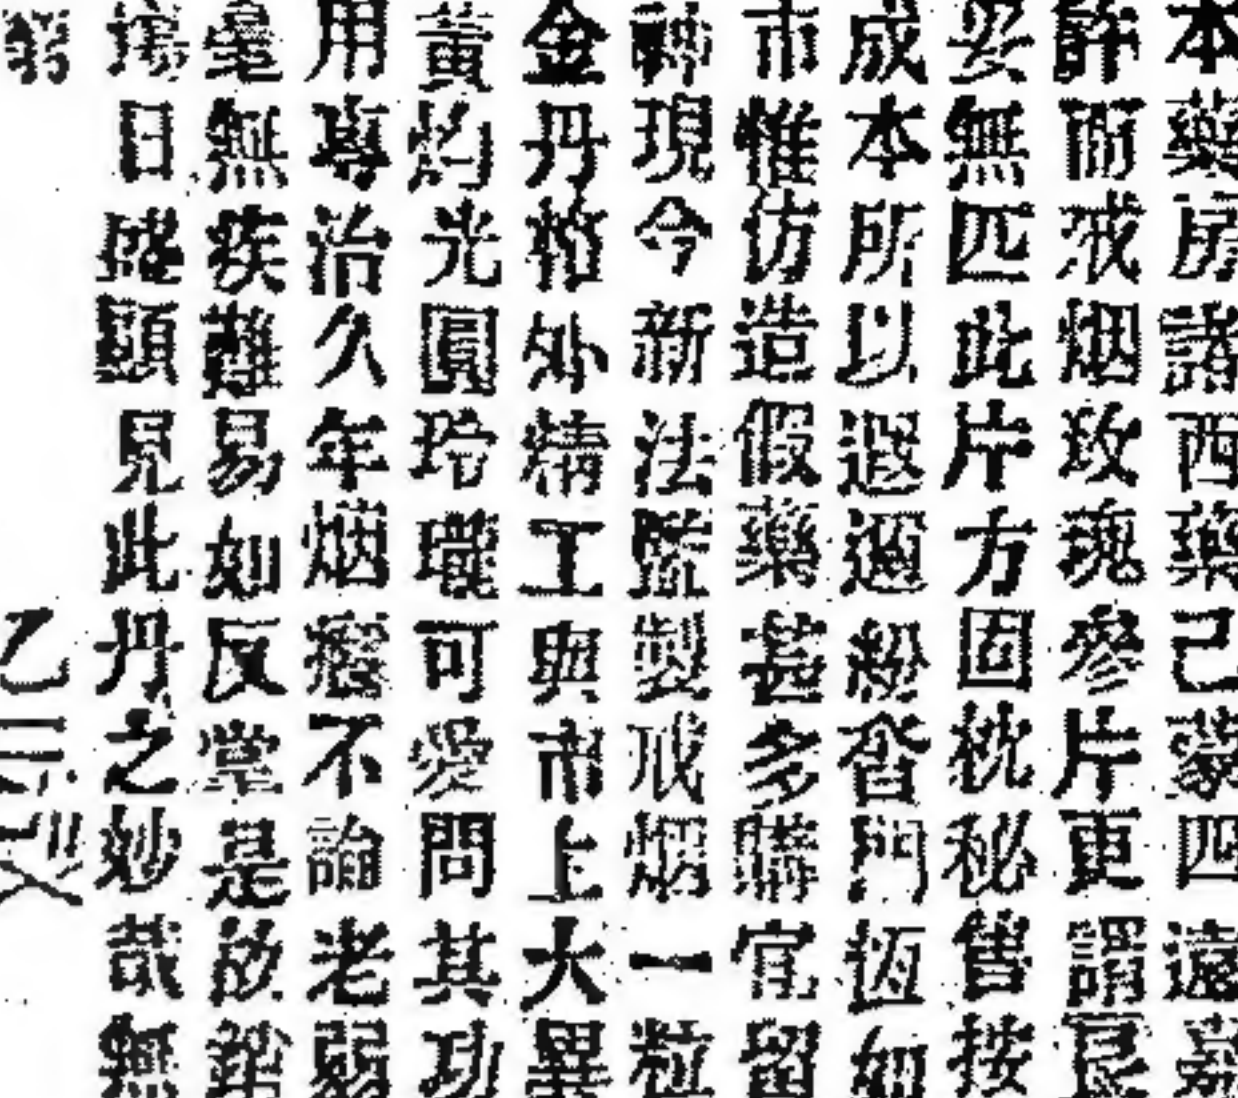 本藥房諸西藥己蒙四遠嘉
許而戒烟玫瑰參片更謂良
妥無匹此片方固枕秘售按
成本所以遐邇紛沓門恆如
市惟仿造假藥甚多購宜留
神現今新法監製戒烟一粒
金丹格外精工與市上大異
黃灼光圓玲瓏可愛問其功
用專治久年烟癮不論老弱
毫無疾難易如反掌是故銷
塲日盛顯見此丹之妙哉無